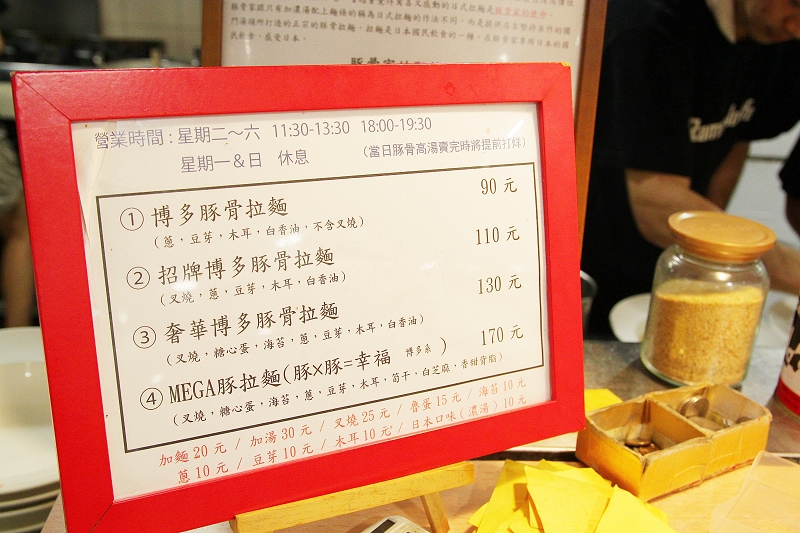 門湯頭所打造的正宗的豚骨拉麵，拉麵是日本國民飲食的一種，在豚骨家享用日本的國
民飲食，感受日本。
營業時間：星期二～六 11:30-13:30 18:00-19:30
星期一＆日 休息 （當日豚骨高湯賣完時將提前打烊）
① 博多豚骨拉麵 90 元
（蔥，豆芽，木耳，白香油，不含叉燒）
② 招牌博多豚骨拉麵 110 元
（叉燒，蔥，豆芽，木耳，白香油）
③ 奢華博多豚骨拉麵 130 元
（叉燒，糖心蛋，海苔，蔥，豆芽，木耳，白香油）
④ MEGA豚拉麵（豚×豚=幸福 博多系 ） 170 元
（叉燒，糖心蛋，海苔，蔥，豆芽，木耳，筍干，白芝麻，香甜背脂）
加麵 20 元 / 加湯 30 元 / 叉燒 25 元 / 魯蛋 15 元 / 海苔 10 元
蔥 10 元 / 豆芽 10 元 / 木耳 10 元 / 日本口味（濃湯）10 元